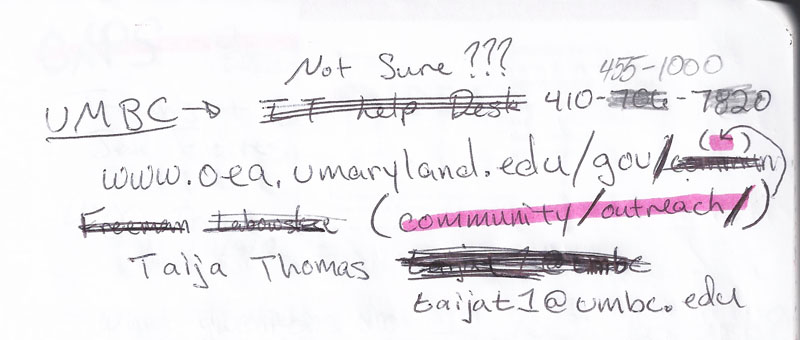 Not Sure ???
455-1000
UMBC → IT help Desk 410-706-7820
( )
www.oea.umaryland.edu/gov/
Freeman (community/outreach/)
Taija Thomas
taijat1@umbc.edu